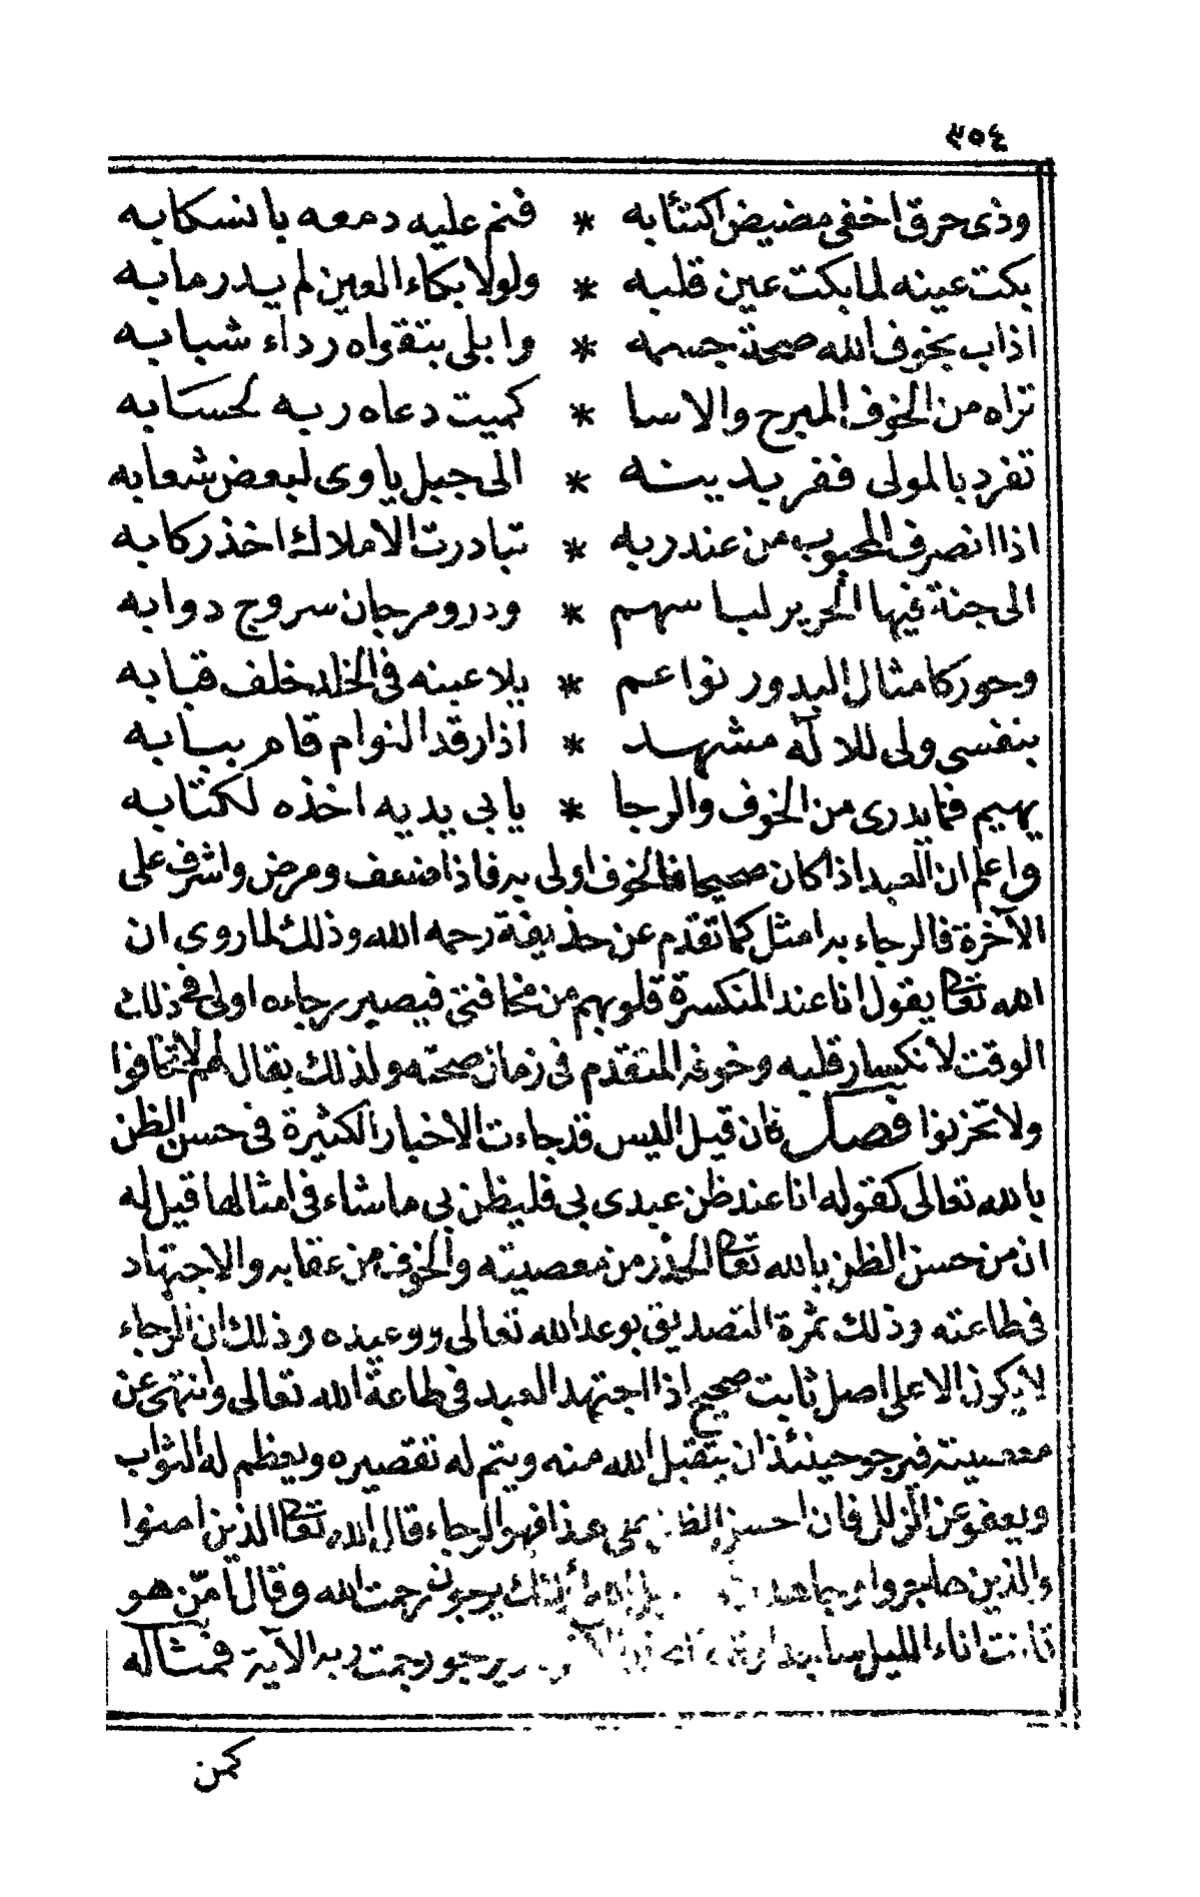 ٣٥٤
وذى حرق اخفى مضيض اكتئابه * فنم عليه دمعه بانسكابه
بكت عينه لما بكت عين قلبه * ولولا بكاء العين لم يدر مابه
اذاب بخوف الله صحة جسمه * وابلى بتقواه رداء شبابه
تراه من الخوف المبرح والاسا * كميت دعاه ربه لحسابه
تفرد بالمولى ففر بدينه * الى جبل ياوى لبعض شعابه
اذا انصرف المحبوب من عند ربه * تبادرت الاملاك اخذ ركابه
الى جنة فيها الحرير لباسهم * ودر ومرجان سروج دوابه
وحور كامثال البدور نواعم * يلاعبنه فى الخلد خلف قبابه
بنفسى ولى للاله مشهد * اذا رقد النوام قام ببابه
يهيم فما يدرى من الخوف والرجا * يا بى يديه اخذه لكتابه
واعلم ان العبد اذا كان صحيحا فالخوف اولى به فاذا ضعف ومرض واشرف على
الآخرة فالرجاء به امثل كما تقدم عن حذيفة رحمه الله وذلك لما روى ان
الله تعا يقول انا عند المنكسرة قلوبهم من مخافتى فيصير رجاءه اولى فى ذلك
الوقت لانكسار قلبه وخوفه المتقدم فى زمان صحته ولذلك يقال لهم لا تخافوا
ولا تحزنوا فصل فان قيل اليس قد جاءت الاخبار الكثيرة فى حسن الظن
بالله تعالى كقوله انا عند ظن عبدى بى فليظن بى ما شاء فى امثالها قيل له
ان من حسن الظن بالله تعا الحذر من معصيته والخوف من عقابه والاجتهاد
فى طاعته وذلك ثمرة التصديق بوعد الله تعالى ووعيده وذلك ان الرجاء
لا يكون الا على اصل ثابت صحيح اذا اجتهد العبد فى طاعة الله تعالى وانتهى عن
معصيته فيرجو حينئذ ان يتقبل الله منه ويتم له تقصيره ويعظم له الثواب
ويعفو عن الزلل فان احسن الظن بمعنى هذا فهو الرجاء قال الله تعا الذين امنوا
والذين هاجروا وجاهدوا الله أولئك يرجون رحمت الله وقال امّن هو
قانت اناء الليل ساجدا يرجو رحمت ربه الآية فمثاله
كمن